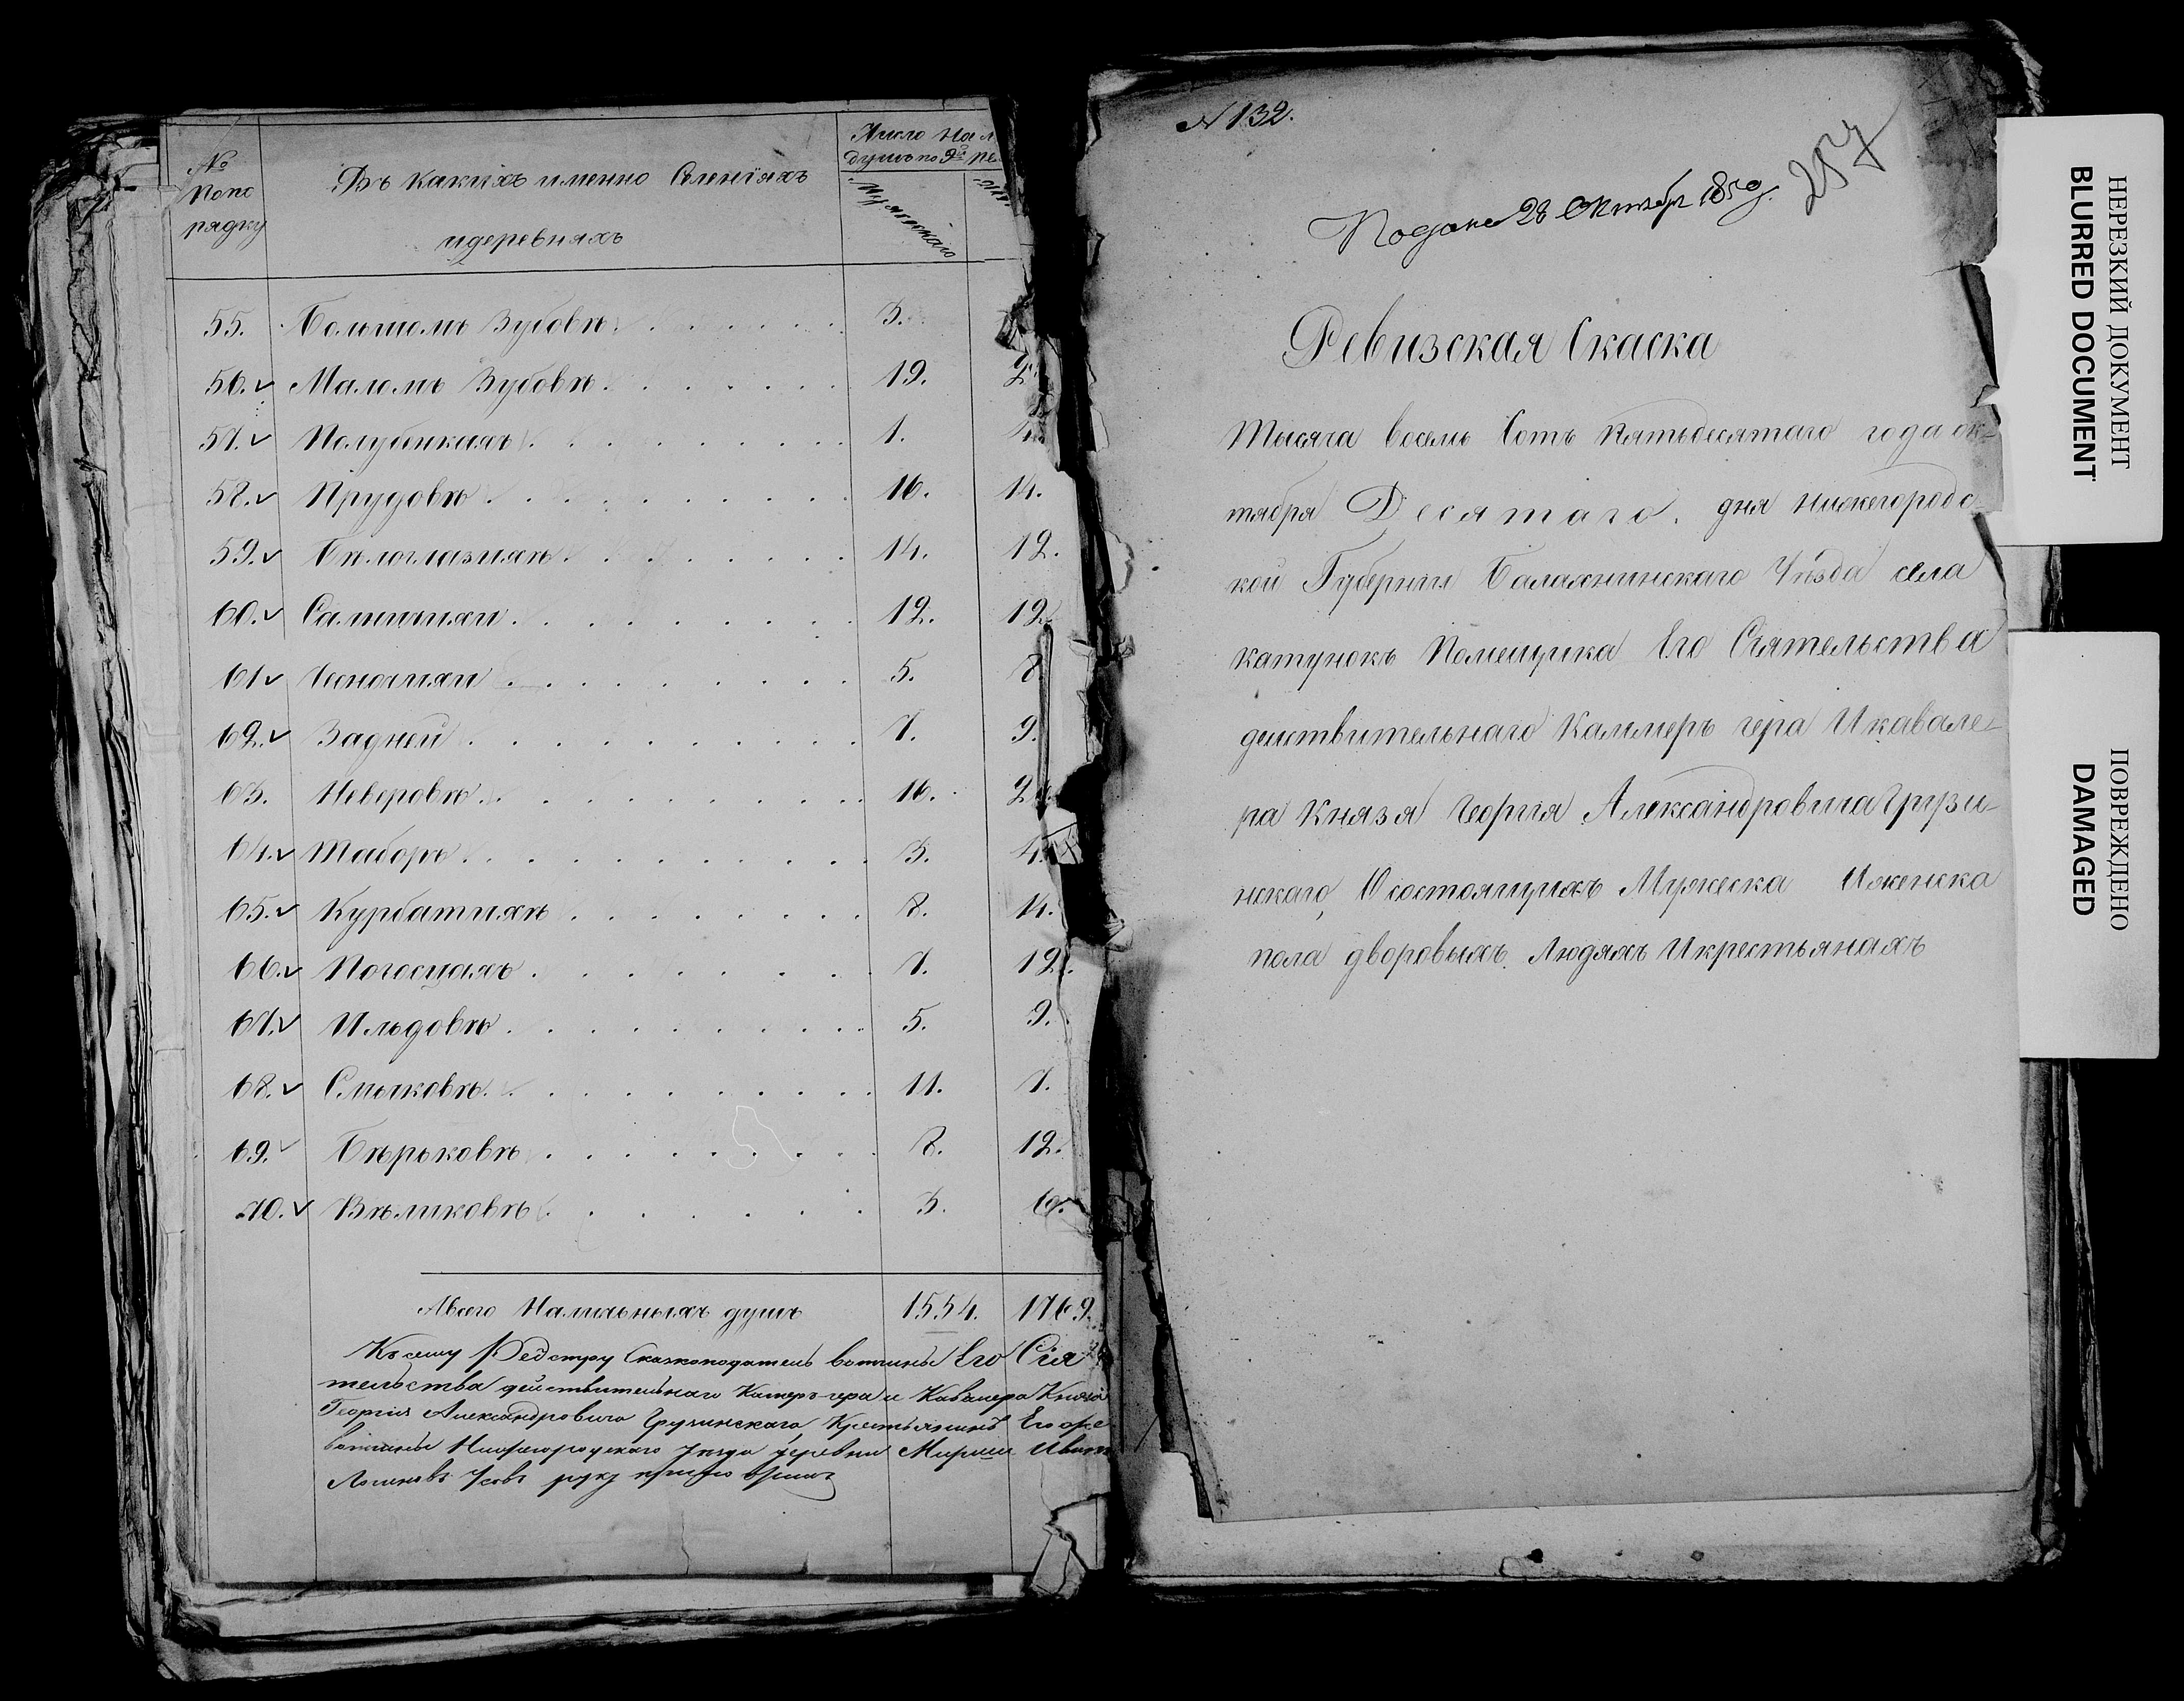 № попо рядку
Въ какихъ именно Селенїяхъ идеревняхъ
Число на
душъ по 9й
Мужскаго
55. Большомъ Зубовѣ 3.
56. Маломъ Зубовѣ. 19. 2
57. 1.
58. Прудовѣ 16. 14.
59. Бѣлоглазихѣ 14. 12.
60. 12. 12
61 5. 8
62. Задней 7. 9.
63. Неверовѣ. 16. 2
64. Таборѣ. 3. 4.
65. Курбатихѣ 8. 14.
66. Погосцахъ 7. 12.
67. Ильдовѣ 5. 9.
68. Смыковѣ. 11. 7.
69. Бѣрьковѣ 8. 12.
70. Вѣликовѣ 3. 6.
Авсего Наличьныхъ душъ 1554. 1769.
Къ сему Реэстру Сказкоподатель вотчины Его Сія
тельства действительнаго Камеръ-гера и Кавалера Князя
Георгія Александровича Грузинскаго Крестьянинъ Егоже
вотчины Нижегородскаго уезда деревни
Усовъ руку приложилъ
N 132.
257
Подана 28 Октября 1850.
Ревизская Скаска
Тысяча восемь Сотъ пятьдесятаго года ок-
тября Десятаго. дня нижегородс-
кой Губернїи Балахнинскаго Уѣзда села
катунокъ Помещика Его Сїятельства
действительнаго Каммеръ гера Икавале-
ра Князя Георгїя Александровича Грузи-
нскаго, О состоящихъ Мужеска Иженска
пола дворовыхъ Людяхъ Икрестьянахъ
НЕРЕЗКИЙ ДОКУМЕНТ
BLURRED DOCUMENT
ПОВРЕЖДЕНО
DAMAGED